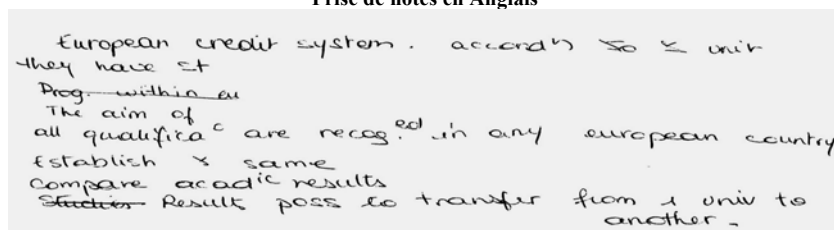 Prise de notes en Anglais
European credit system. accordn to ≤ univ
they have st
Prog. within eu
The aim of
all qualificaᶜ are recog.ᵉᵈ in any european country
Establish ≤ same
compare acadⁱᶜ results
Studies Result poss to transfer from 1 univ to
another.